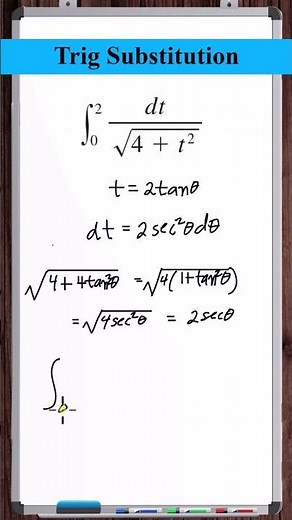 Trig Substitution
∫₀² dt / √(4 + t²)
t = 2tanθ
dt = 2sec²θdθ
√(4 + 4tan²θ) = √(4(1+tan²θ))
= √(4sec²θ) = 2secθ
∫